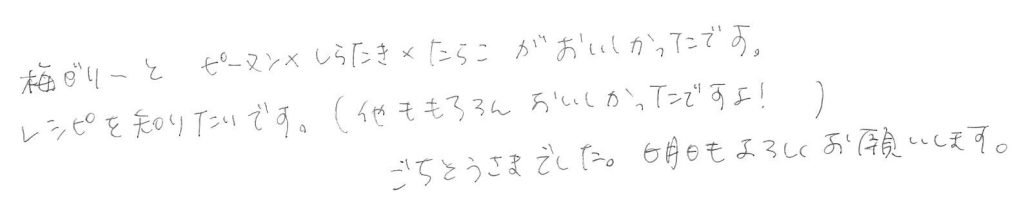 梅ゼリーと ピーマン×しらたき×たらこ がおいしかったです。
レシピを知りたいです。(他ももちろん おいしかったですよ! )
ごちそうさまでした。明日もよろしくお願いします。